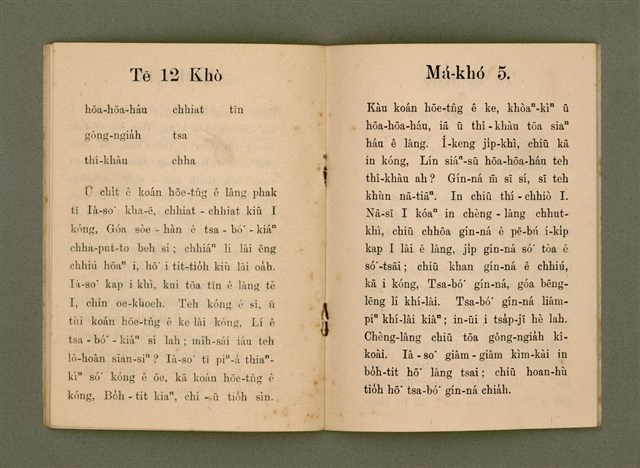 Tē 12 Khò
hōa-hōa-háu chhiat tīn
gông-ngia̍h tsa
thî-khàu chha
Ū chi̍t ê koán hōe-tn̂g ê lâng phak
tī Iâ-so͘ kha-ē, chhiat-chhiat kiû I
kóng, Góa sòe-hàn ê tsa-bó͘-kiáⁿ
chha-put-to beh sí; chhiáⁿ lí lâi ēng
chhiú hōaⁿ i, hō͘ i tit-tio̍h kiù lâi oa̍h.
Iâ-so͘ kap i khì, kui tōa tīn ê lâng tè
I, chin oe-khoeh. Teh kóng ê sî, ū
tùi koán hōe-tn̂g ê ke lâi kóng, Lí ê
tsa-bó͘-kiáⁿ sí lah; mih-sái iáu teh
lô-hoân sian-siⁿ? Iâ-so͘ tī piⁿ-á thiaⁿ-
kìⁿ só͘ kóng ê ōe, kā koán hōe-tn̂g ê
kóng, Bo̍h-tit kiaⁿ, chí-ū tio̍h sìn.
Má-khó 5.
Kàu koán hōe-tn̂g ê ke, khòaⁿ-kìⁿ ū
hōa-hōa-háu, iā ū thî-khàu tōa siaⁿ
háu ê lâng. Í-keng ji̍p-khì, chiū kā
in kóng, Lín siáⁿ-sū hōa-hōa-háu teh
thî-khàu ah? Gín-ná m̄ sī sí, sī teh
khùn nā-tiāⁿ. In chiū thí-chhiò I.
Nā-sī I kóaⁿ in chèng-lâng chhut-
khì, chiū chhōa gín-ná ê pē-bú í-ki̍p
kap I lâi ê lâng, ji̍p gín-ná só͘ tòa ê
só͘-tsāi; chiū khan gín-ná ê chhiú,
kā i kóng, Tsa-bó͘ gín-ná, góa bēng-
lēng lí khí-lâi. Tsa-bó͘ gín-ná liâm-
piⁿ khí-lâi kiâⁿ; in-ūi i tsa̍p-jī hè lah.
Chèng-lâng chiū tōa gông-ngia̍h kî-
koài. Iâ-so͘ giâm-giâm kìm-kài in
bo̍h-tit hō͘ lâng tsai; chiū hoan-hù
tio̍h hō͘ tsa-bó͘ gín-ná chia̍h.